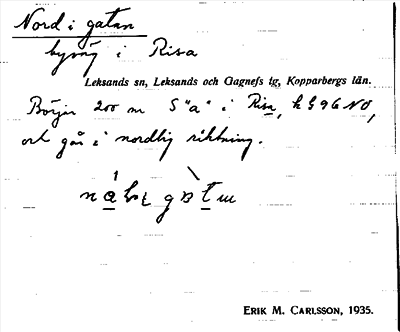 Nord i gatan
byväg i Risa
Leksands sn, Leksands och Gagnefs tg, Kopparbergs län.
Börjar 200 m S "a" i Risa, k 896 NO,
och går i nordlig riktning.
ERIK M. CARLSSON, 1935.